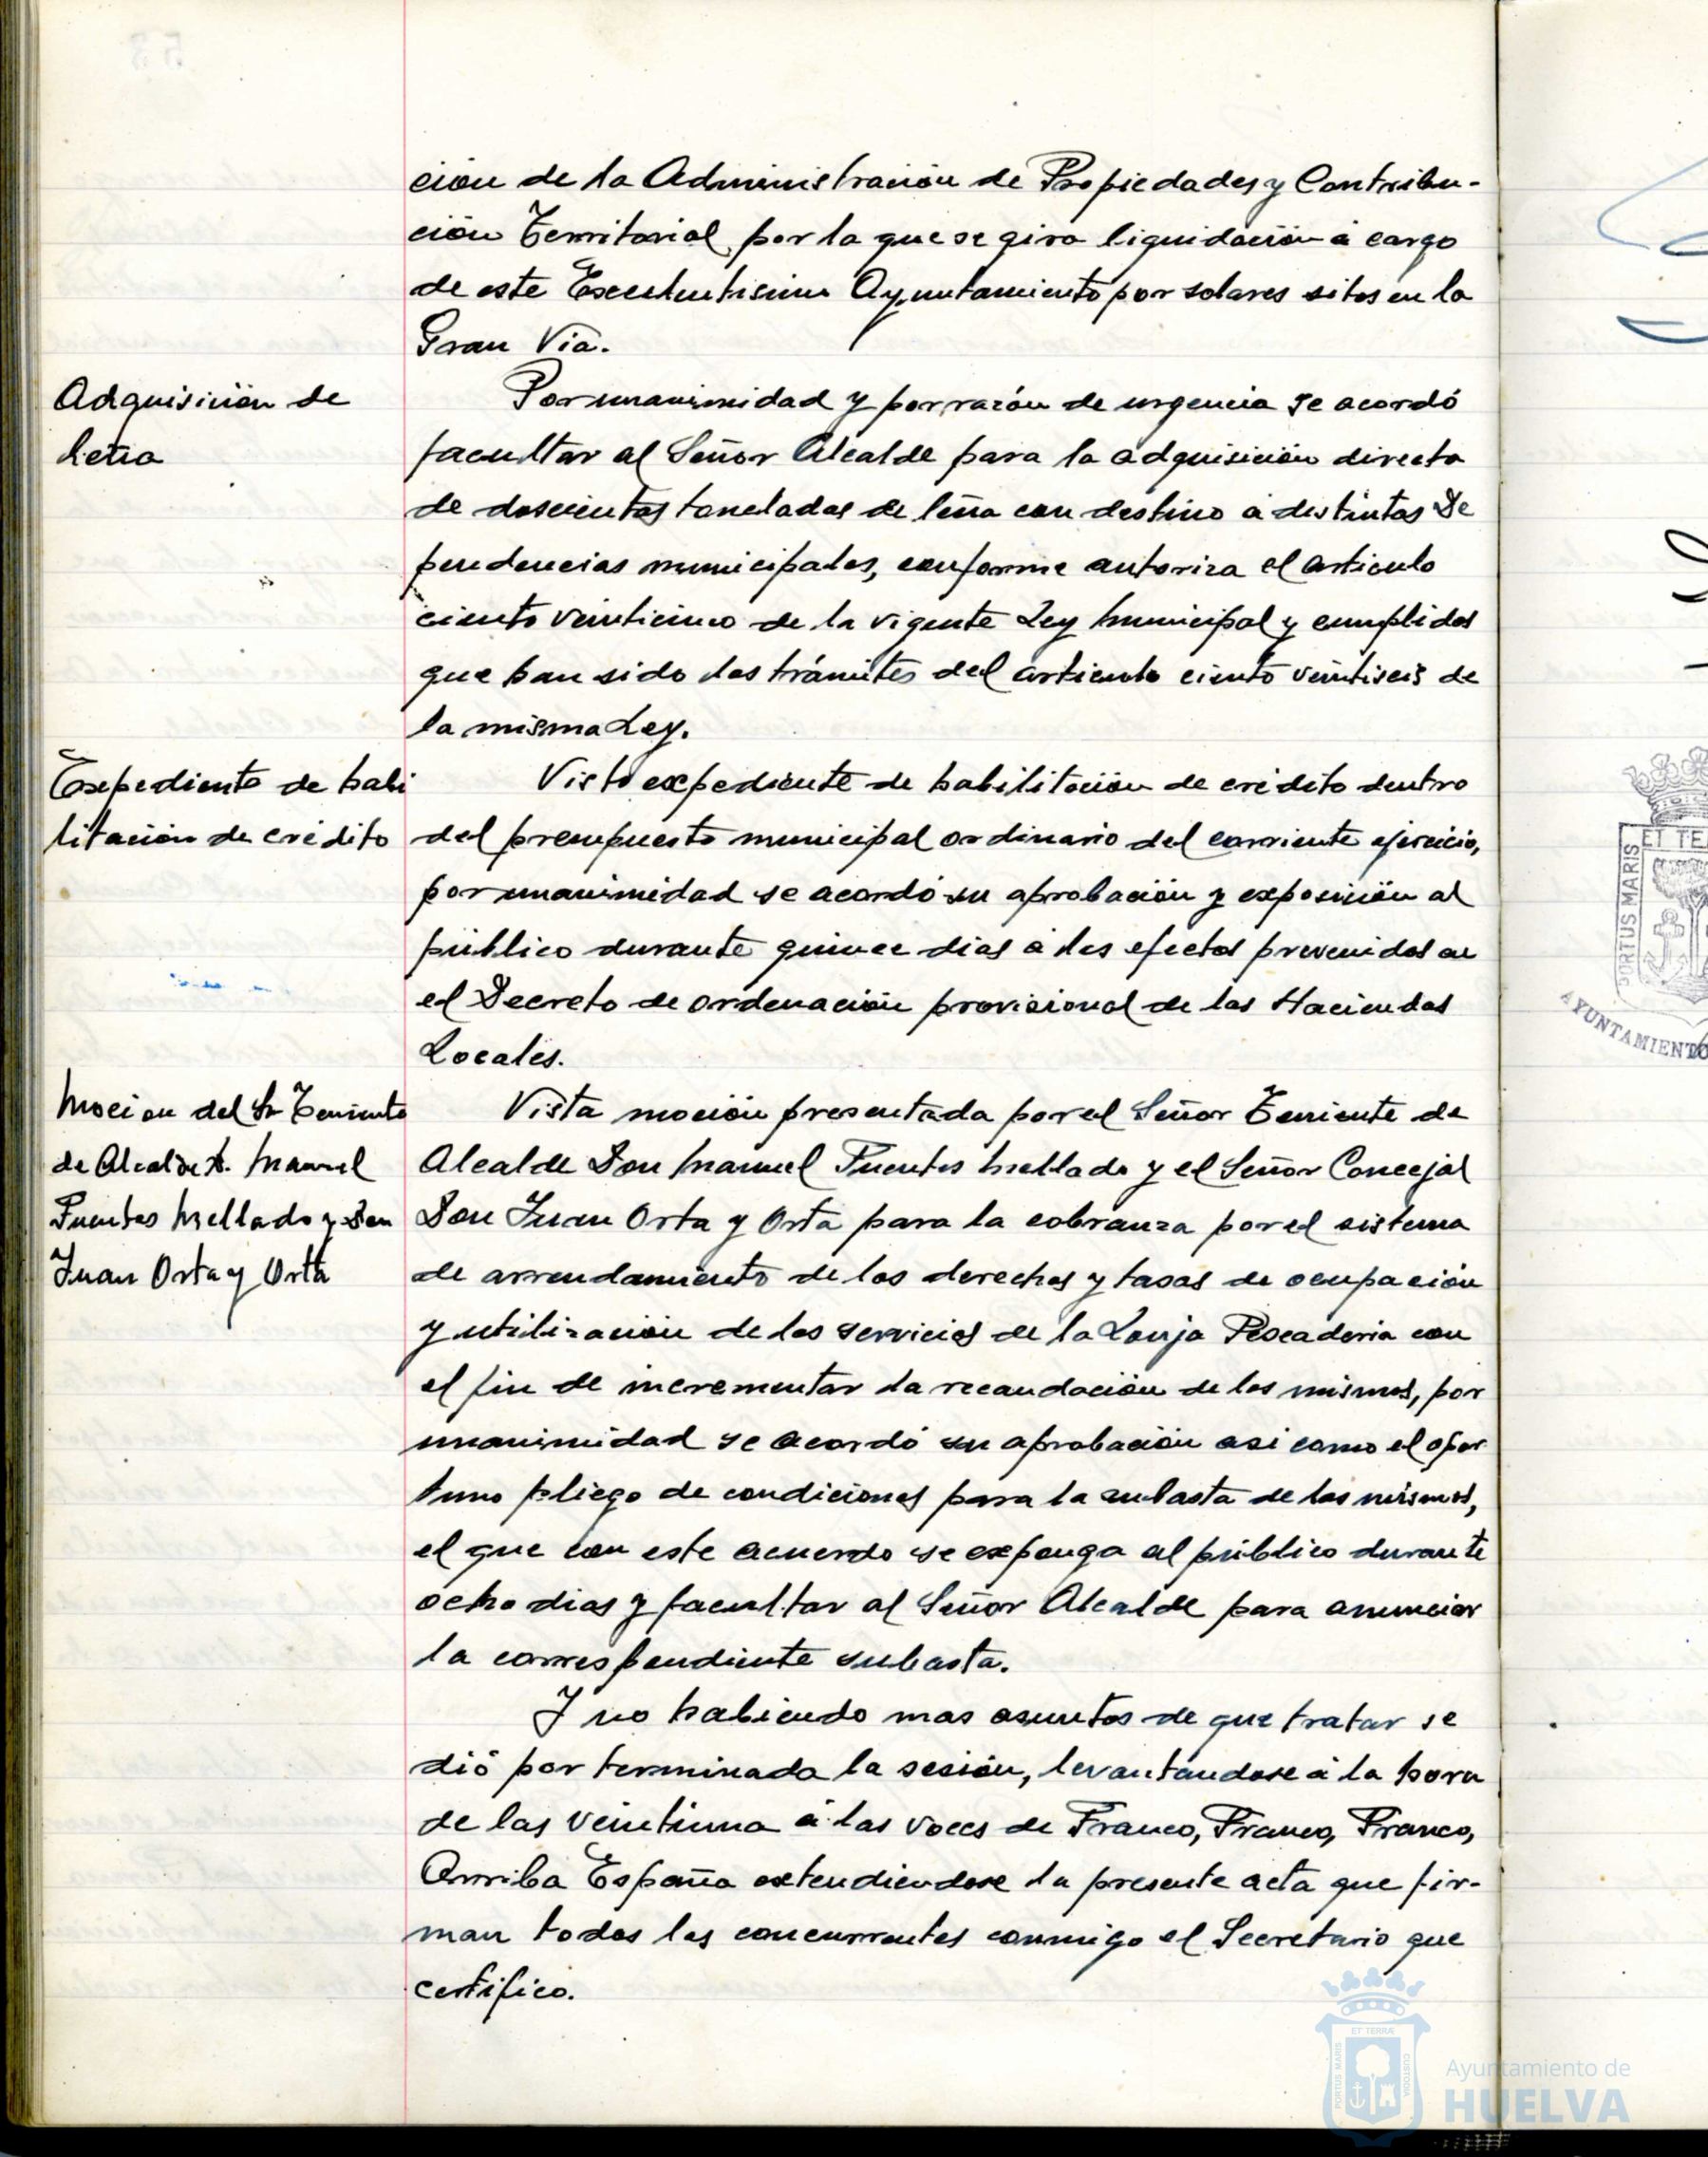 ción de la Administración de Propiedades y Contribu-
ción Territorial por la que se gira liquidación á cargo
de este Excelentisimo Ayuntamiento por solares sitos en la
Gran Via.
Adquisición de
leña
Por unanimidad y por razón de urgencia se acordó
facultar al Señor Alcalde para la adquisición directa
de doscientas toneladas de leña con destino a distintas De
pendencias municipales, conforme autoriza el articulo
ciento veinticinco de la vigente Ley Municipal y cumplidos
que han sido los trámites del articulo ciento veintiseis de
la misma Ley.
Expediente de habi
litación de crédito
Visto expediente de habilitación de crédito dentro
del presupuesto municipal ordinario del corriente ejercicio,
por unanimidad se acordó su aprobación y exposición al
público durante quince dias á los efectos prevenidos en
el Decreto de ordenación provisional de las Haciendas
Locales.
Moción del Sr Teniente
de Alcalde D. Manuel
Fuentes Mellado y Don
Juan Orta y Orta
Vista moción presentada por el Señor Teniente de
Alcalde Don Manuel Fuentes Mellado y el Señor Concejal
Don Juan Orta y Orta para la cobranza por el sistema
de arrendamiento de los derechos y tasas de ocupación
y utilización de los servicios de la Lonja Pescaderia con
el fin de incrementar la recaudación de los mismos, por
unanimidad se acordó su aprobación asi como el opor
tuno pliego de condiciones para la subasta de los mismos,
el que con este acuerdo se exponga al público durante
ocho dias y facultar al Señor Alcalde para anunciar
la correspondiente subasta.
Y no habiendo mas asuntos de que tratar se
dió por terminada la sesión, levantándose á la hora
de las veintiuna á las voces de Franco, Franco, Franco,
Arriba España extendiendose la presente acta que fir-
man todos los concurrentes conmigo el Secretario que
certifico.
PORTUS MARIS
ET TE
AYUNTAMIENTO
PORTUS MARIS
ET TERRÆ
CUSTODIA
Ayuntamiento de
HUELVA